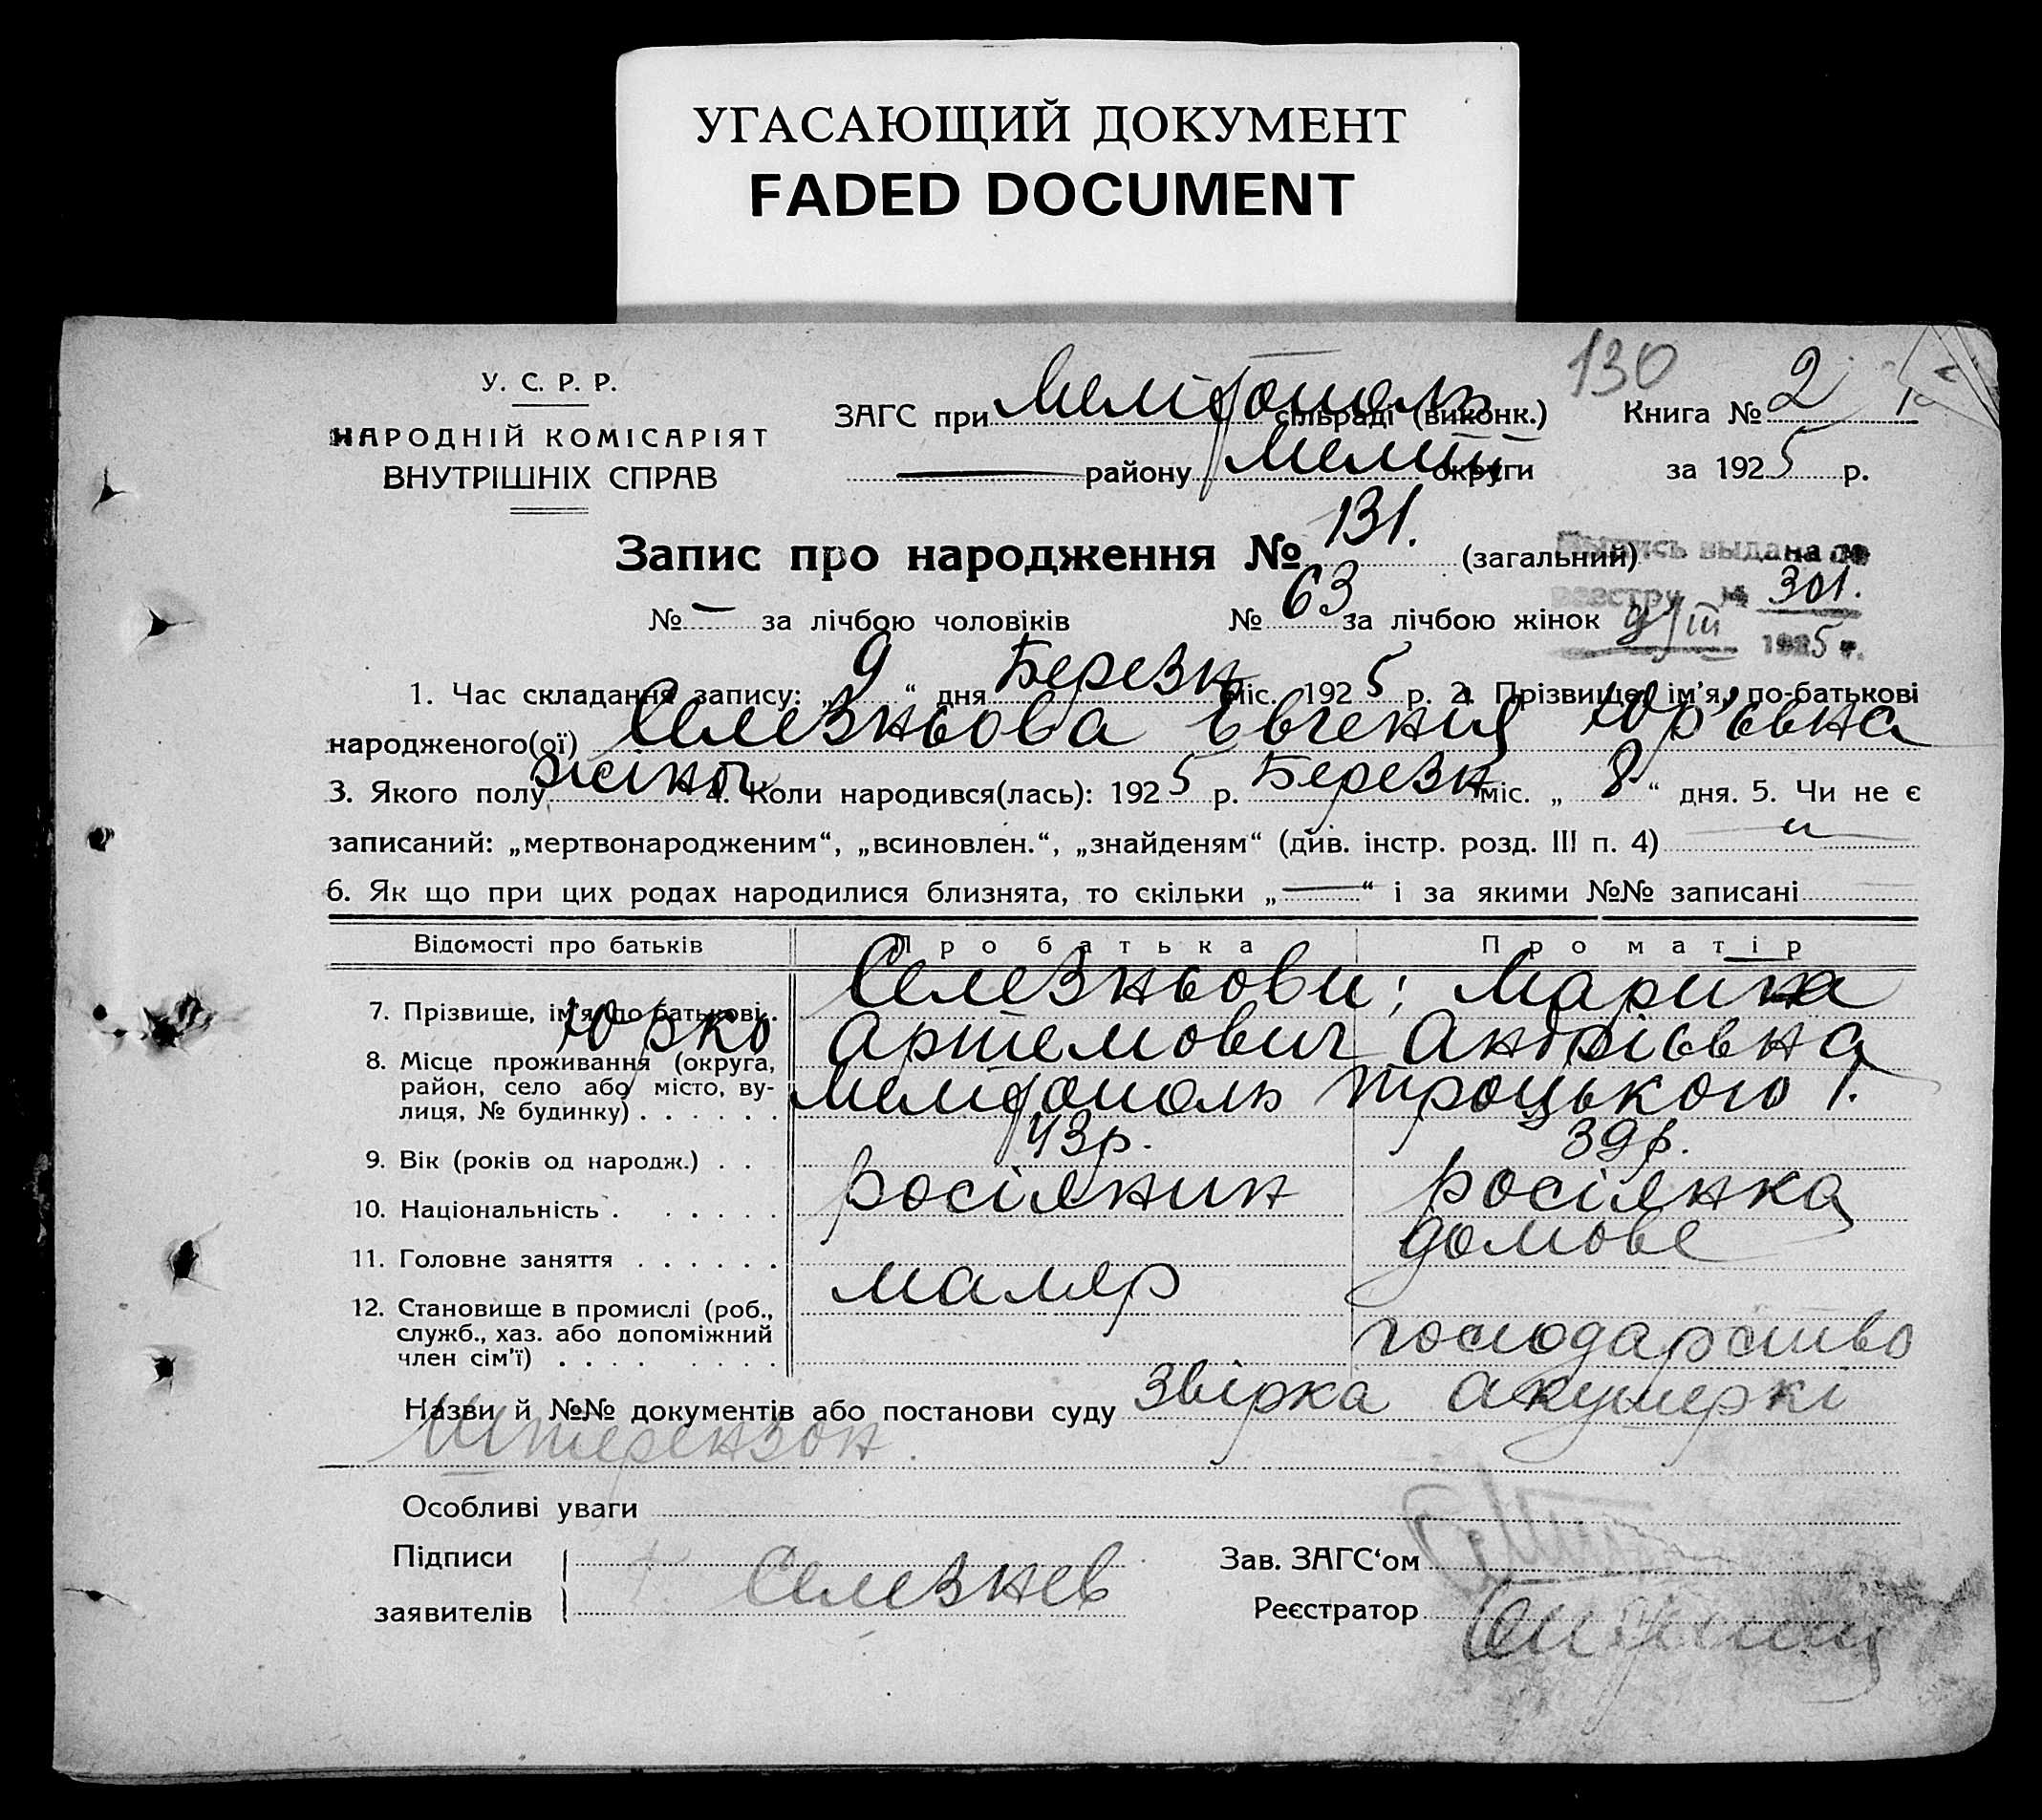 УГАСАЮЩИЙ ДОКУМЕНТ
FADED DOCUMENT
130
У. С. Р. Р.
НАРОДНІЙ КОМІСАРІЯТ
ВНУТРІШНІХ СПРАВ
ЗАГС при Мелітополь сільраді (виконк.)
— району Меліт округи
Книга № 2
за 1925 р.
Запис про народження № 131. (загальний)
Выпись выдана по
реестру № 301.
9/III 1925 г.
№ — за лічбою чоловіків № 63 за лічбою жінок
1. Час складання запису: „9“ дня Березн міс. 1925 р. 2. Прізвище, ім'я, по-батькові
народженого(ої) Селезньова Євгенія Юр'євна
3. Якого полу жіноч 4. Коли народився(лась): 1925 р. Березн міс. „8“ дня. 5. Чи не є
записаний: „мертвонародженим“, „всиновлен.“, „знайденям“ (див. інстр. розд. III п. 4)
6. Як що при цих родах народилися близнята, то скільки „—“ і за якими №№ записані
Відомості про батьків Про батька Про матір
7. Прізвище, ім'я, по батькові. Селезньови; Марина
Юрко Артемович Андрієвна
8. Місце проживання (округа,
район, село або місто, ву-
лиця, № будинку) Мелітополь Троцького 1.
9. Вік (років од народж.) 43р. 39р.
10. Національність росіянин росіянка
11. Головне заняття маляр домове
12. Становище в промислі (роб.,
служб., хаз. або допоміжний
член сім'ї) господарство
Назви й №№ документів або постанови суду Звірка акушеркі
Штерензон.
Особливі уваги
Підписи
заявителів Селезнев
Зав. ЗАГС'ом
Реєстратор